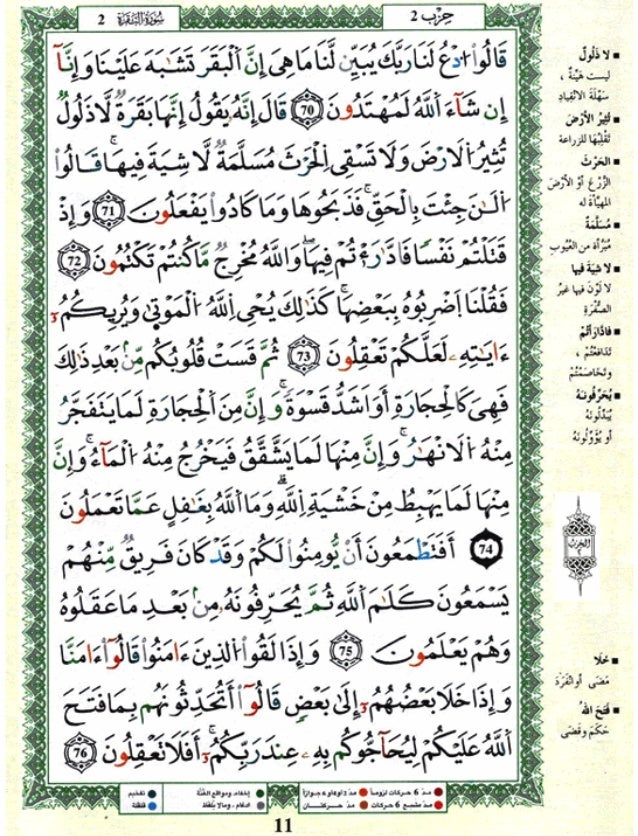 حِزْب 2
سُورَةُ البَقَرَةِ 2
قَالُواْ ادْعُ لَنَا رَبَّكَ يُبَيِّن لَّنَا مَا هِيَ إِنَّ اَلْبَقَرَ تَشَٰبَهَ عَلَيْنَا وَإِنَّآ
إِن شَآءَ اَللَّهُ لَمُهْتَدُونَ 70 قَالَ إِنَّهُۥ يَقُولُ إِنَّهَا بَقَرَةٞ لَّا ذَلُولٞ
تُثِيرُ اُلَارْضَ وَلَا تَسْقِي اِلْحَرْثَ مُسَلَّمَةٞ لَّا شِيَةَ فِيهَاۖ قَالُواْ
اُلَٰنَ جِئْتَ بِالْحَقِّۖ فَذَبَحُوهَا وَمَا كَادُواْ يَفْعَلُونَ 71 وَإِذْ
قَتَلْتُمْ نَفْسٗا فَادَّٰرَٰٔتُمْ فِيهَاۖ وَاللَّهُ مُخْرِجٞ مَّا كُنتُمْ تَكْتُمُونَ 72
فَقُلْنَا اَضْرِبُوهُ بِبَعْضِهَاۖ كَذَٰلِكَ يُحْيِ اِللَّهُ اُلْمَوْتَىٰ وَيُرِيكُمُۥٓ
ءَايَٰتِهِۦ لَعَلَّكُمْ تَعْقِلُونَ 73 ثُمَّ قَسَتْ قُلُوبُكُم مِّنۢ بَعْدِ ذَٰلِكَ
فَهِيَ كَالْحِجَارَةِ أَوَ اَشَدُّ قَسْوَةٗۖ وَإِنَّ مِنَ اَلْحِجَارَةِ لَمَا يَتَفَجَّرُ
مِنْهُ اُلَانْهَٰرُۖ وَإِنَّ مِنْهَا لَمَا يَشَّقَّقُ فَيَخْرُجُ مِنْهُ اُلْمَآءُۖ وَإِنَّ
مِنْهَا لَمَا يَهْبِطُ مِنْ خَشْيَةِ اِللَّهِۖ وَمَا اَللَّهُ بِغَٰفِلٍ عَمَّا تَعْمَلُونَ
74 أَفَتَطْمَعُونَ أَنْ يُّومِنُواْ لَكُمْ وَقَدْ كَانَ فَرِيقٞ مِّنْهُمْ
يَسْمَعُونَ كَلَٰمَ اَللَّهِ ثُمَّ يُحَرِّفُونَهُۥ مِنۢ بَعْدِ مَا عَقَلُوهُ
وَهُمْ يَعْلَمُونَ 75 وَإِذَا لَقُواْ اُلذِينَ ءَامَنُواْ قَالُوٓاْ ءَامَنَّا
وَإِذَا خَلَا بَعْضُهُمُۥٓ إِلَىٰ بَعْضٖ قَالُوٓاْ أَتُحَدِّثُونَهُم بِمَا فَتَحَ
اَللَّهُ عَلَيْكُمْ لِيُحَآجُّوكُم بِهِۦ عِندَ رَبِّكُمُۥٓۖ أَفَلَا تَعْقِلُونَ 76
لا ذَلُولٌ
ليست هَيِّنَةً ،
سَهْلَةَ الانْقِيَادِ
تُثِيرُ الأَرْضَ
تُقَلِّبُهَا للزراعة
الحَرْثَ
الزَّرْعَ أوْ الأرْضَ
المهيَّأة له
مُسَلَّمَةٌ
مُبَرَّأَة من العُيوب
لا شِيَةَ فيها
لا لَوْنَ فيها غيرُ
الصُّفْرَةِ
فادّارَأتُم
تَدَافَعْتُمْ ،
وتَخَاصَمْتُمْ
يُحَرِّفُونَهُ
يُبَدِّلُونَهُ
أو يُؤَوِّلُونَهُ
الحزب
٢
خَلَا
مَضَى أو انْفَرَدَ
فَتَحَ اللهُ
حَكَمَ وقَضَى
مدّ 6 حركات لزوماً
مدّ 2 أو 4 أو 6 جوازاً
إخفاء، ومواقع الغُنَّة
تفخيم
مدّ مشبع 6 حركات
مدّ حركتان
إدغام ، وما لا يُلفَظ
قلقلة
11